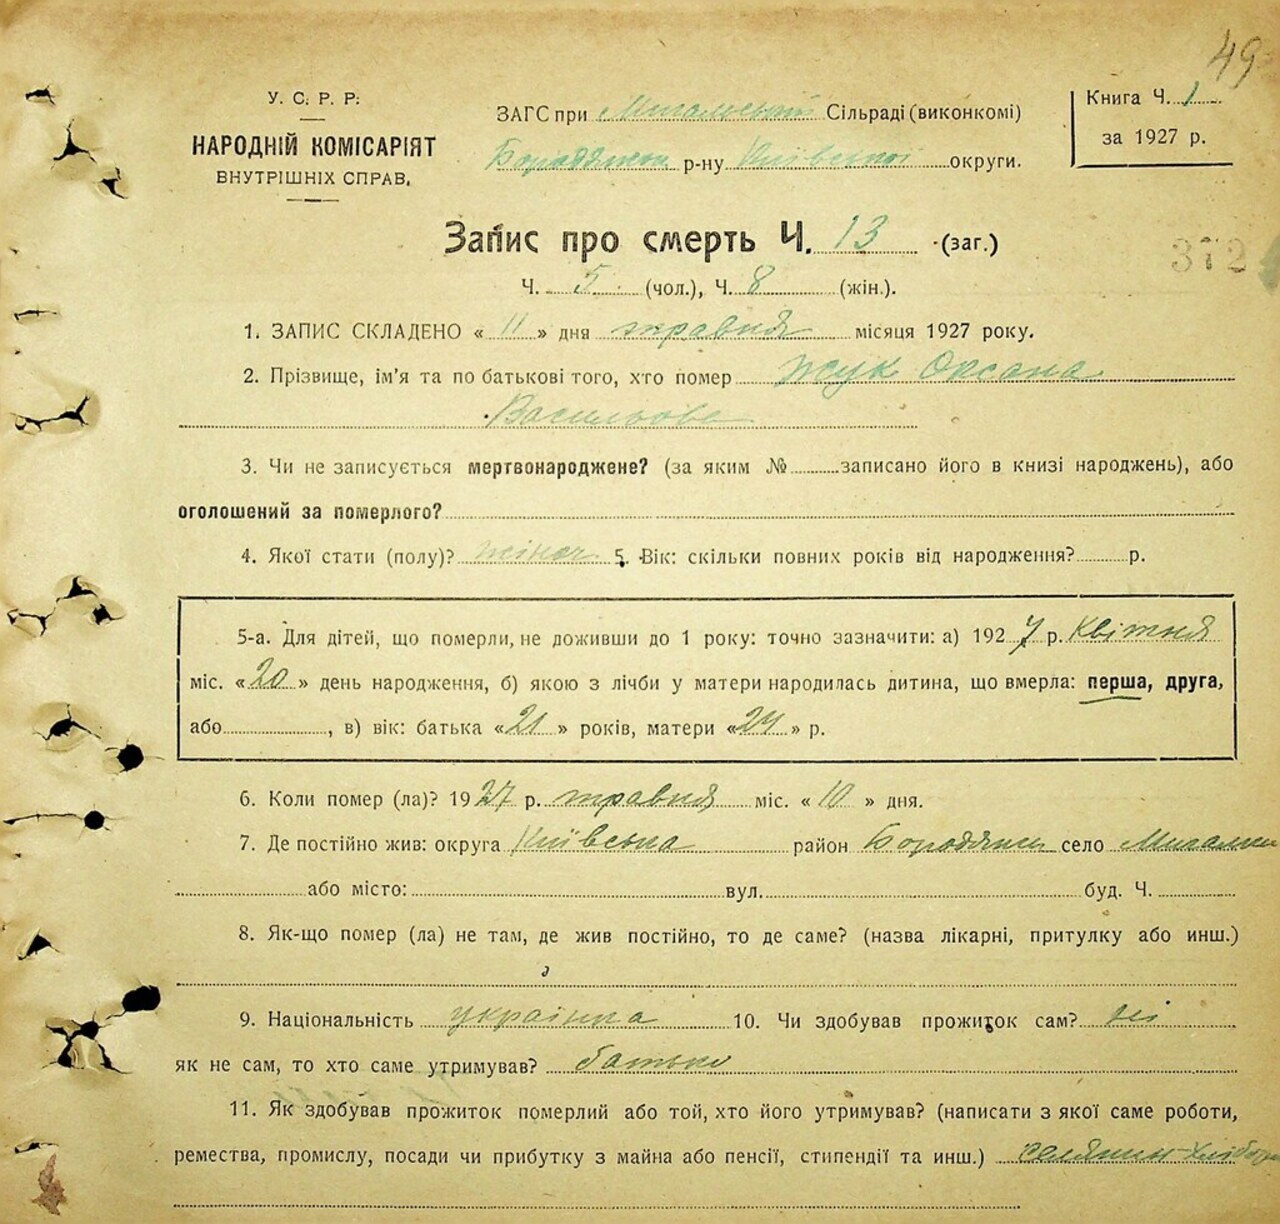 49
У. С. Р. Р.
НАРОДНІЙ КОМІСАРІЯТ
ВНУТРІШНІХ СПРАВ.
ЗАГС при Мигальській Сільраді (виконкомі)
Бородянськ р-ну Київської округи.
Книга Ч. 1
за 1927 р.
Запис про смерть Ч. 13 (заг.)
372
Ч. 5 (чол.), Ч. 8 (жін.).
1. ЗАПИС СКЛАДЕНО « 11 » дня травня місяця 1927 року.
2. Прізвище, ім'я та по батькові того, хто помер Жук Оксана
Васильова
3. Чи не записується мертвонароджене? (за яким № записано його в книзі народжень), або
оголошений за померлого?
4. Якої стати (полу)? жіноч. 5. Вік: скільки повних років від народження? р.
5-а. Для дітей, що померли, не доживши до 1 року: точно зазначити: а) 1927 р. Квітня
міс. « 20 » день народження, б) якою з лічби у матери народилась дитина, що вмерла: перша, друга,
або , в) вік: батька « 21 » років, матери « 24 » р.
6. Коли помер (ла)? 1927 р. травня міс. « 10 » дня.
7. Де постійно жив: округа Київська район Бородянськ село Мигалки
або місто: вул. буд. Ч.
8. Як-що помер (ла) не там, де жив постійно, то де саме? (назва лікарні, притулку або инш.)
9. Національність українка 10. Чи здобував прожиток сам? ні
як не сам, то хто саме утримував? батько
11. Як здобував прожиток померлий або той, хто його утримував? (написати з якої саме роботи,
ремества, промислу, посади чи прибутку з майна або пенсії, стипендії та инш.) селянин-